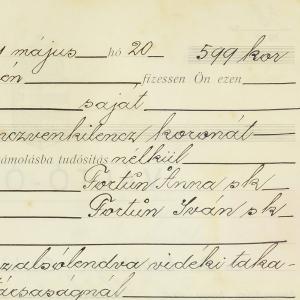 május hó 20 599 kor
én fizessen Ön ezen
saját
nczvenkilencz koronát
zámolásba tudósítás nélkül
Fortün Anna sk
Fortün Iván sk
zalsólendva vidéki taka-
társaságnál